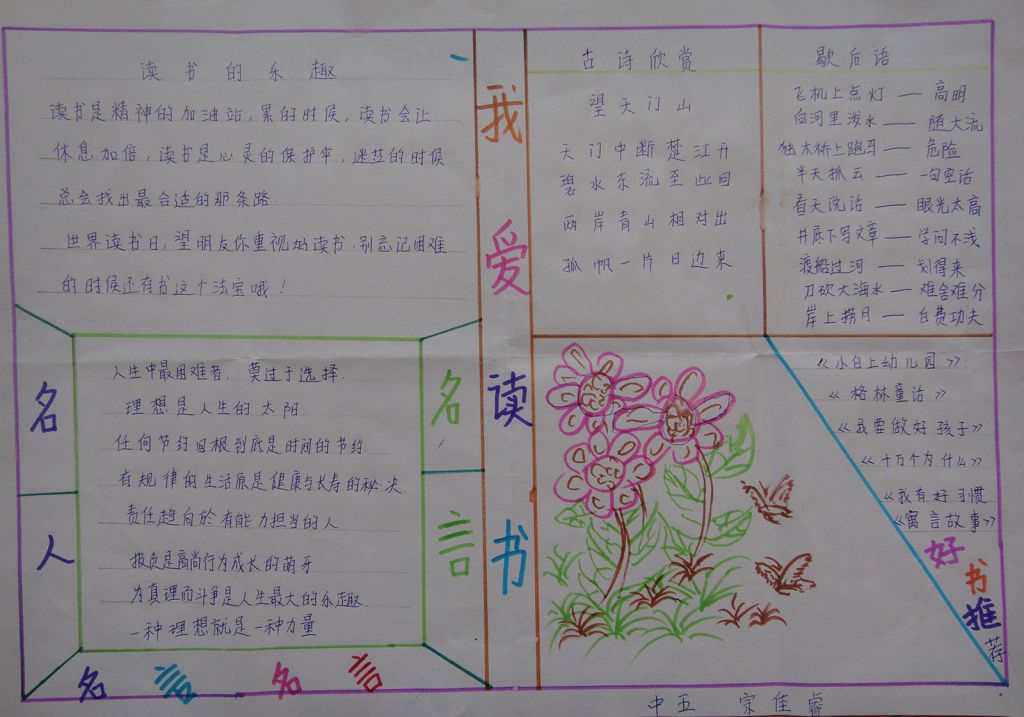 读书的乐趣
读书是精神的加油站,累的时候,读书会让
休息加倍,读书是心灵的保护伞,迷茫的时候
总会找出最合适的那条路.
世界读书日,望朋友你重视的读书,别忘记困难
的时候还有书这个法宝哦!
名
人
名
言
人生中最困难者,莫过于选择.
理想是人生的太阳
任何节约归根到底是时间的节约.
有规律的生活原是健康与长寿的秘决
责任趋向於有能力担当的人
报负是高尚行为成长的萌牙
为真理而斗争是人生最大的乐趣.
一种理想就是一种力量
名言名言
我
爱
读
书
古诗欣赏
望天门山
天门中断楚江开
碧水东流至此回
两岸青山相对出
孤帆一片日边来
歇后语
飞机上点灯——高明
向河里泼水——随大流
独木桥上跑马——危险
半天抓云——一句空话
看天说话——眼光太高
井底下写文章——学问不浅
渡船过河——划得来
刀砍大海水——难舍难分
岸上捞月——白费功夫
《小白上幼儿园》
《格林童话》
《我要做好孩子》
《十万个为什么》
《我有好习惯
《寓言故事》
好
书
推
荐
中五 宗佳睿